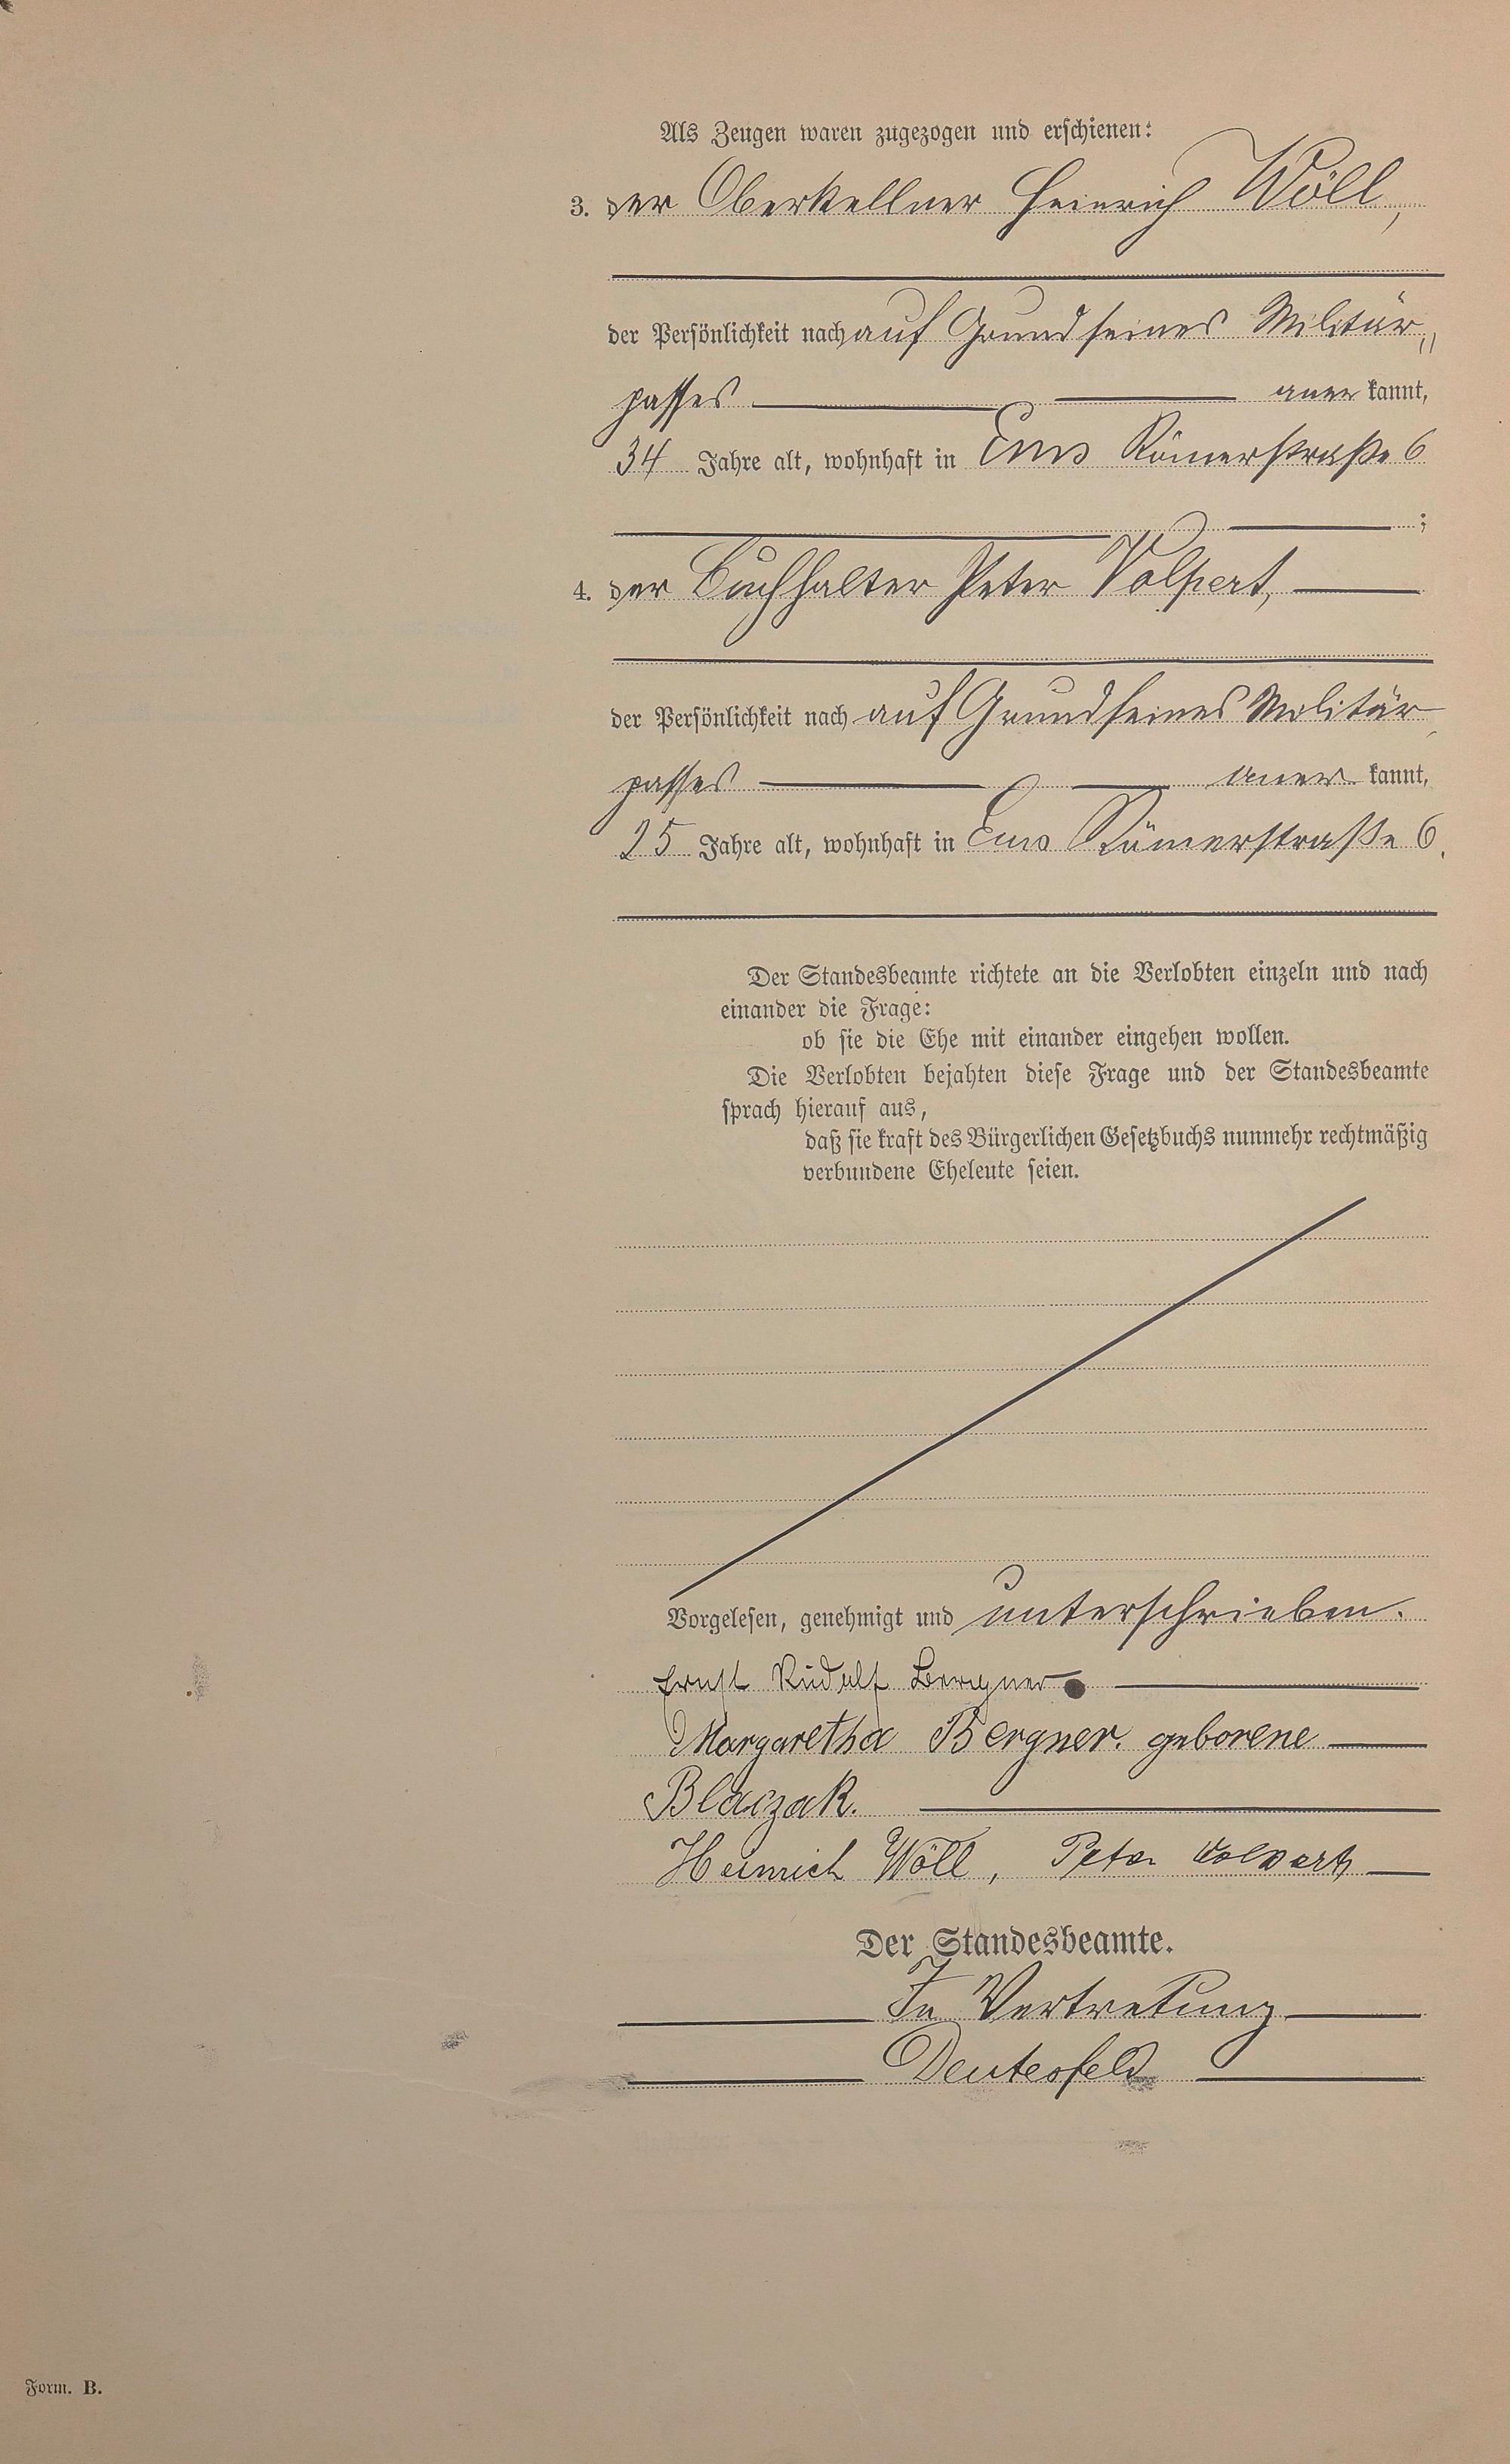 Als Zeugen waren zugezogen und erschienen:
3. der Oberkellner Heinrich Wöll,
der Persönlichkeit nach auf Grund seines Militär„
passes aner kannt,
34 Jahre alt, wohnhaft in Ems Römerstraße 6
;
4. der Buchhalter Peter Volpert,
der Persönlichkeit nach auf Grund seines Militär
passes aner kannt,
25 Jahre alt, wohnhaft in Ems Römerstraße 6.
Der Standesbeamte richtete an die Verlobten einzeln und nach
einander die Frage:
ob sie die Ehe mit einander eingehen wollen.
Die Verlobten bejahten diese Frage und der Standesbeamte
sprach hierauf aus,
daß sie kraft des Bürgerlichen Gesetzbuchs nunmehr rechtmäßig
verbundene Eheleute seien.
Vorgelesen, genehmigt und unterschrieben.
Ernst Rudolf Bergner
Margaretha Bergner. geborene
Blaczak.
Heinrich Wöll, Peter Volpert
Der Standesbeamte.
In Vertretung
Deutesfeld
Form. B.